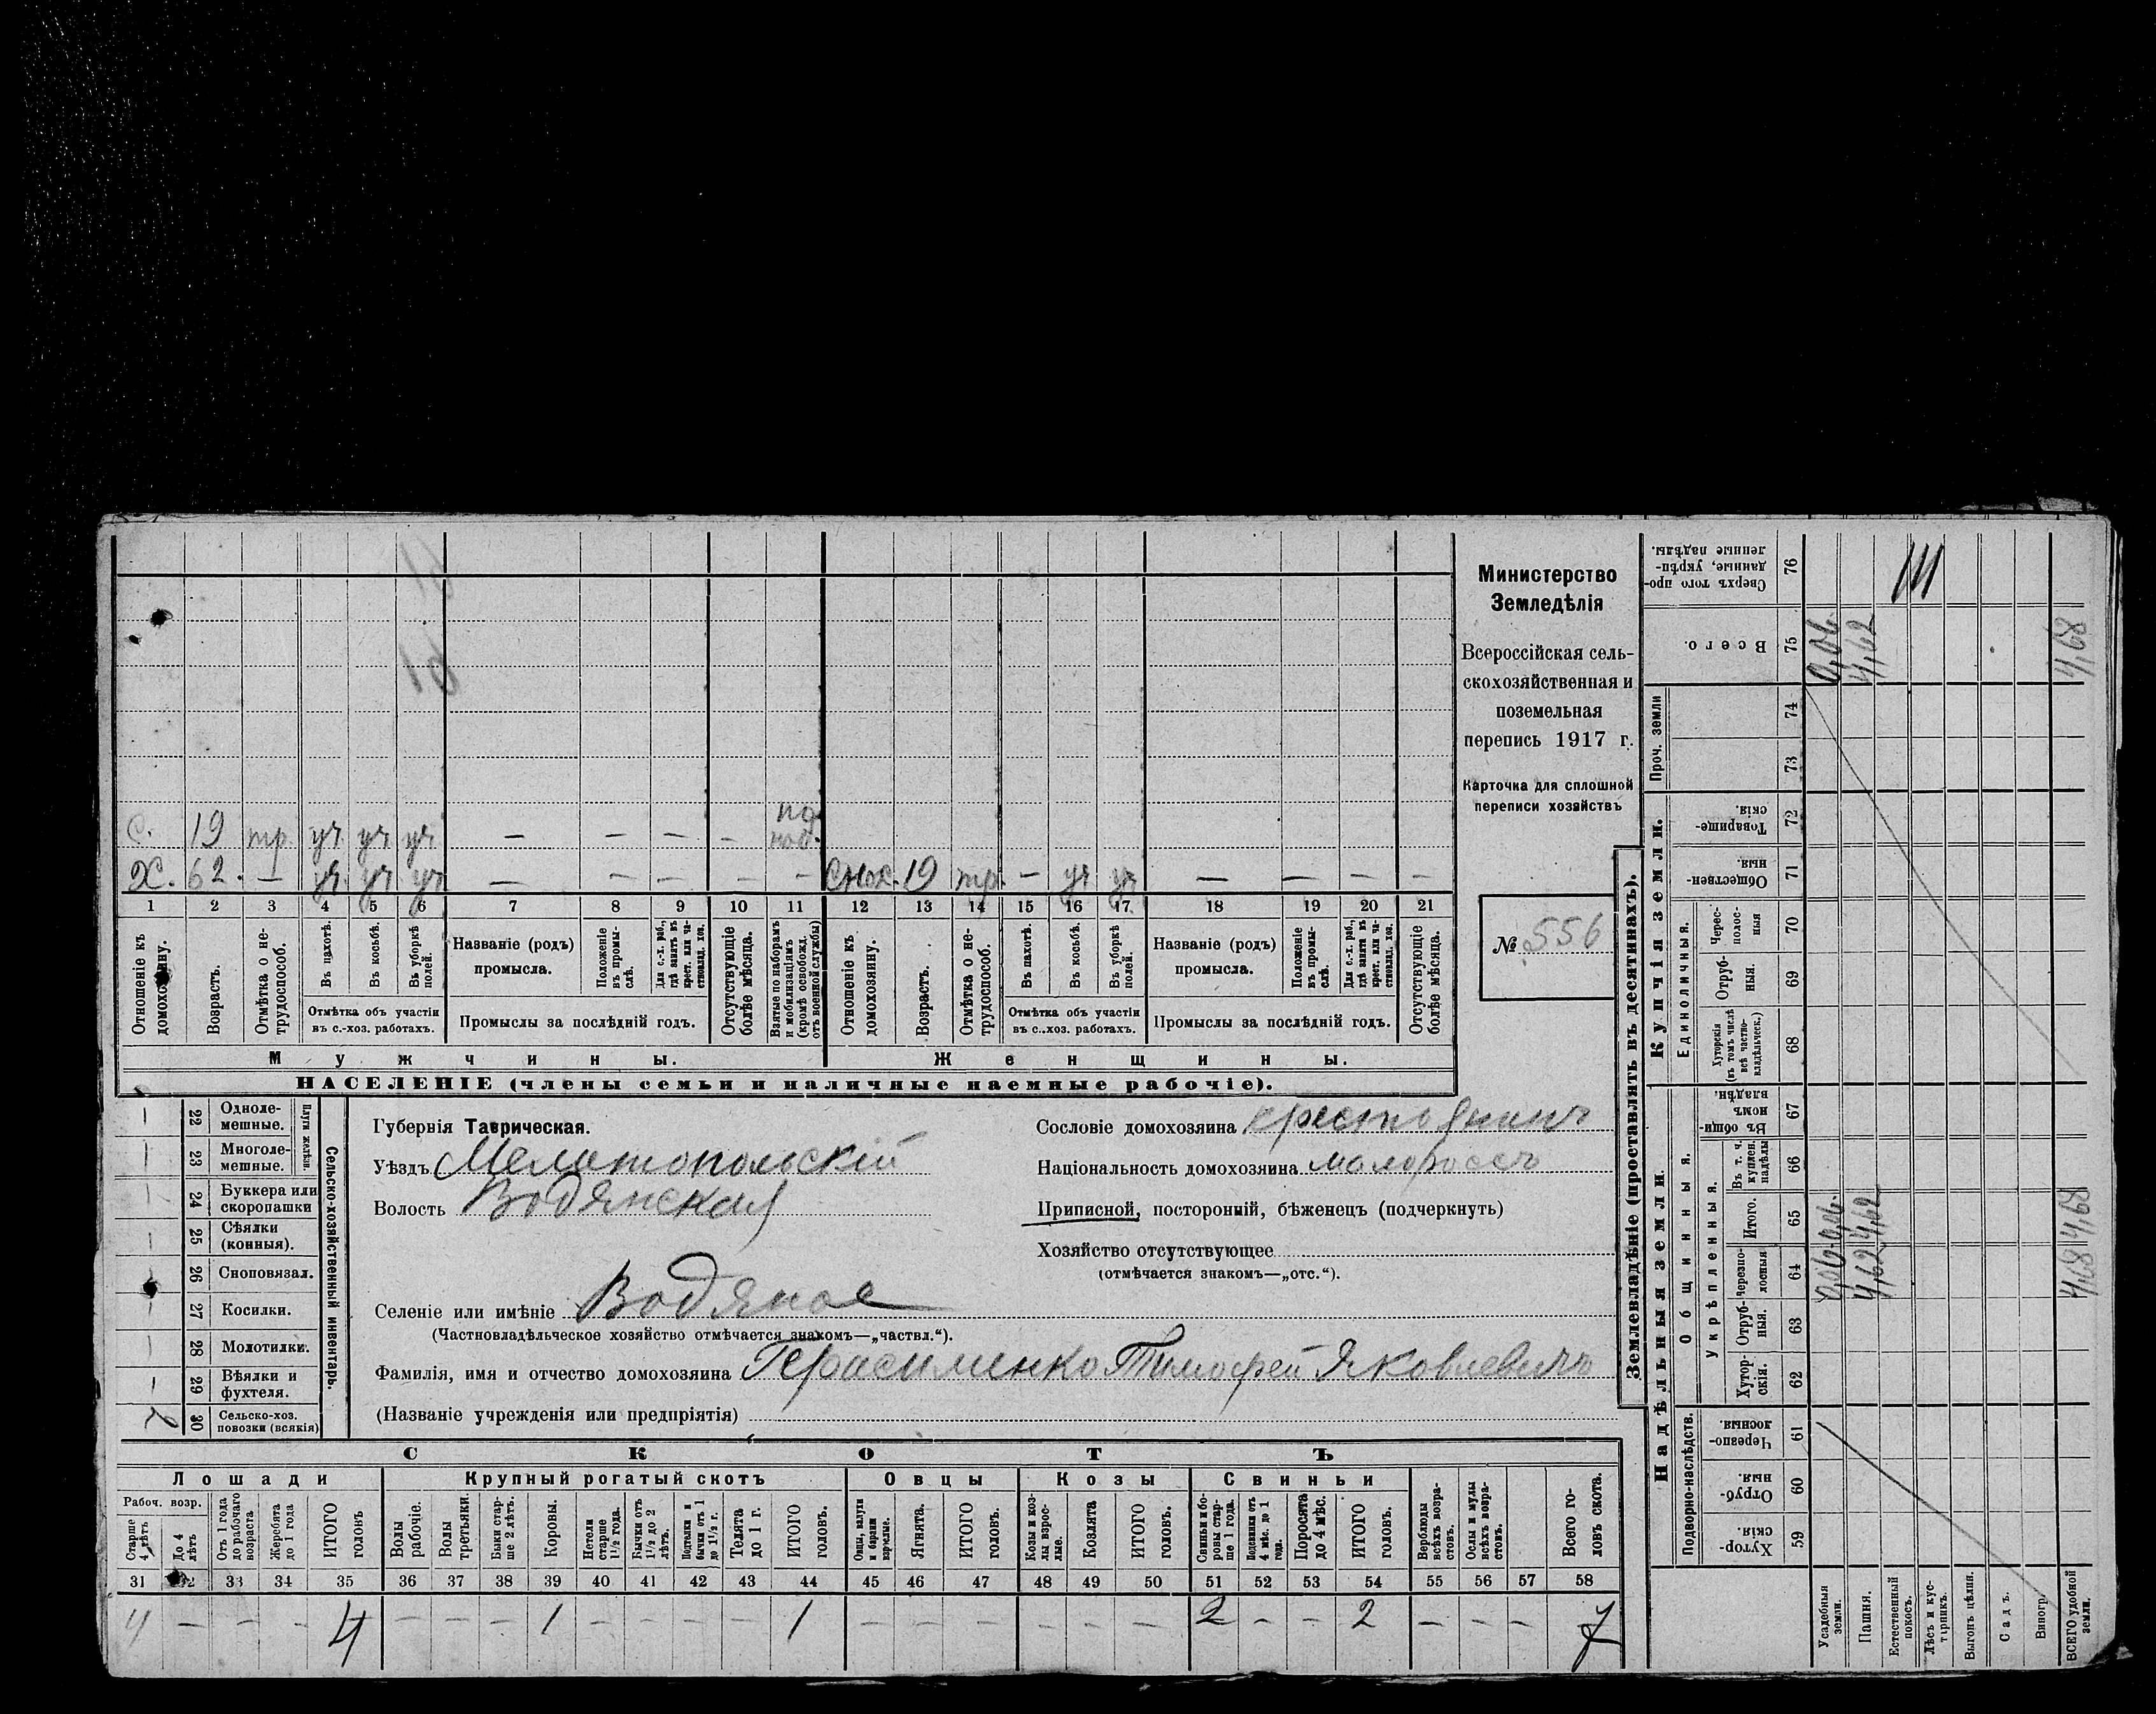 Министерство
Земледѣлія
Всероссійская сель-
скохозяйственная и
поземельная
перепись 1917 г.
Карточка для сплошной
переписи хозяйствъ
№ 556
с. 19 тр. уч. уч. уч. — — — — по
наб.
Х. 62. — уч. уч. уч. — — — — — снох. 19 тр. — уч. уч. — — — —
1 2 3 4 5 6 7 8 9 10 11 12 13 14 15 16 17 18 19 20 21
Отношеніе къ домохозяину.
Возрастъ.
Отмѣтка о не-трудоспособ.
Въ пахотѣ.
Въ косьбѣ.
Въ уборкѣ полей.
Отмѣтка объ участіи
въ с.-хоз. работахъ.
Названіе (родъ)
промысла.
Положеніе въ промы-слѣ.
Для с.-х. раб., гдѣ занятъ въ крест. или ча-стновлад. хоз.
Промыслы за послѣдній годъ.
Отсутствующіе болѣе мѣсяца.
Взятые по наборамъ и мобилизаціямъ (кромѣ освобожд. отъ военной службы)
Отношеніе къ домохозяину.
Возрастъ.
Отмѣтка о не-трудоспособ.
Въ пахотѣ.
Въ косьбѣ.
Въ уборкѣ полей.
Отмѣтка объ участіи
въ с.-хоз. работахъ.
Названіе (родъ)
промысла.
Положеніе въ промы-слѣ.
Для с.-х. раб., гдѣ занятъ въ крест. или ча-стновлад. хоз.
Промыслы за послѣдній годъ.
Отсутствующіе болѣе мѣсяца.
Мужчины. Женщины.
НАСЕЛЕНІЕ (члены семьи и наличные наемные рабочіе).
Сельско-хозяйственный инвентарь.
Плуги желѣзн.
— 22 Одноле-мешные.
— 23 Многоле-мешные.
— 24 Буккера или скоропашки
— 25 Сѣялки (конныя).
— 26 Сноповязал.
— 27 Косилки.
— 28 Молотилки.
— 29 Вѣялки и фухтеля.
30 Сельско-хоз. повозки (всякія)
Губернія Таврическая.
Уѣздъ Мелитопольскій
Волость Водянская
Селеніе или имѣніе Водяное
(Частновладѣльческое хозяйство отмѣчается знакомъ—„частвл.“).
Фамилія, имя и отчество домохозяина Герасименко Тимофей Яковлевичъ
(Названіе учрежденія или предпріятія)
Сословіе домохозяина крестьянинъ
Національность домохозяина малороссъ
Приписной, посторонній, бѣженецъ (подчеркнуть)
Хозяйство отсутствующее
(отмѣчается знакомъ—„отс.“).
СКОТЪ
Лошади Крупный рогатый скотъ Овцы Козы Свиньи
Рабоч. возр.
Старше 4 лѣтъ
До 4 лѣтъ
Отъ 1 года до рабочаго возраста
Жеребята до 1 года
ИТОГО головъ
Волы рабочіе.
Волы третьяки.
Быки стар-ше 2 лѣтъ.
Коровы.
Нетели старше 1½ года.
Бычки отъ 1½ до 2 лѣтъ.
Подтелки и бычки отъ 1 до 1½ г.
Телята до 1 г.
ИТОГО головъ.
Овцы, валухи и бараны взрослые.
Ягнята.
ИТОГО головъ.
Козы и коз-лы взрос-лые.
Козлята
ИТОГО головъ.
Свиньи и бо-ровы стар-ше 1 года.
Подсвинки отъ 4 мѣс. до 1 года.
Поросята до 4 мѣс.
ИТОГО головъ.
Верблюды всѣхъ возра-стовъ.
Ослы и мулы всѣхъ возра-стовъ.
Всего го-ловъ скота.
31 32 33 34 35 36 37 38 39 40 41 42 43 44 45 46 47 48 49 50 51 52 53 54 55 56 57 58
4 — — — 4 — — — 1 — — — — 1 — — — — — — 2 — — 2 — — — 7
Землевладѣніе (проставлять въ десятинахъ).
Надѣльныя земли. Купчія земли. Проч. земли
Подворно-наслѣдств. Общинныя. Единоличныя.
Укрѣпленныя.
Хутор-скія. 59
Отруб-ныя. 60
Черезпо-лосныя. 61
Хутор-скія. 62
Отруб-ныя. 63
Черезпо-лосныя 64
Итого. 65
Въ т. ч. куплен. надѣлы 66
Въ общин-номъ владѣн. 67
Хуторскія (въ томъ числѣ всѣ частно-владѣльческ.) 68
Отруб-ныя. 69
Черес-полос-ныя 70
Обществен-ныя. 71
Товарище-скія. 72
73
74
Всего. 75
Сверхъ того про-данные, укрѣп-ленные надѣлы. 76
Усадебныя земли. 0,06 0,06 0,06
Пашня. 4,62 4,62 4,62
Естественный покосъ.
Лѣсъ и кус-тарникъ.
Выгонъ цѣлин.
Садъ.
Виногр.
ВСЕГО удобной земли. 4,68 4,68 4,68